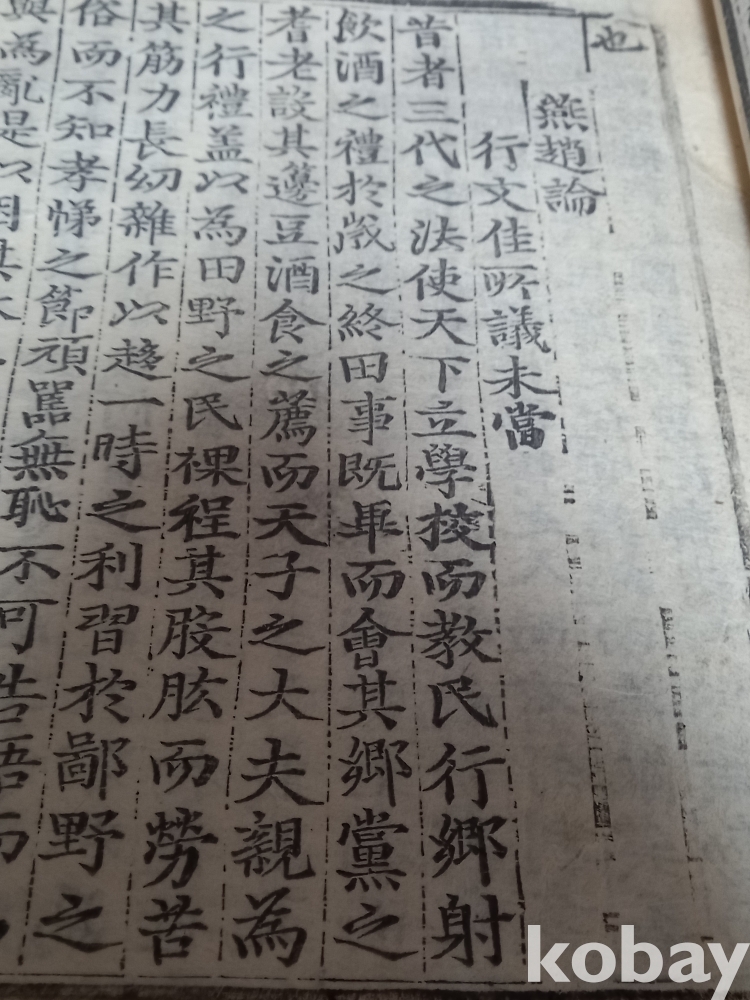 也
燕趙論
行文佳所議未當
昔者三代之法使天下立學校而教民行鄉射
飲酒之禮於歲之終田事既畢而會其鄉黨之
耆老設其籩豆酒食之薦而天子之大夫親為
之行禮蓋以為田野之民裸裎其股肱而勞苦
其筋力長幼雜作以趨一時之利習於鄙野之
俗而不知孝悌之節頑嚚無恥不可告語而
與為亂是以因其
kobay